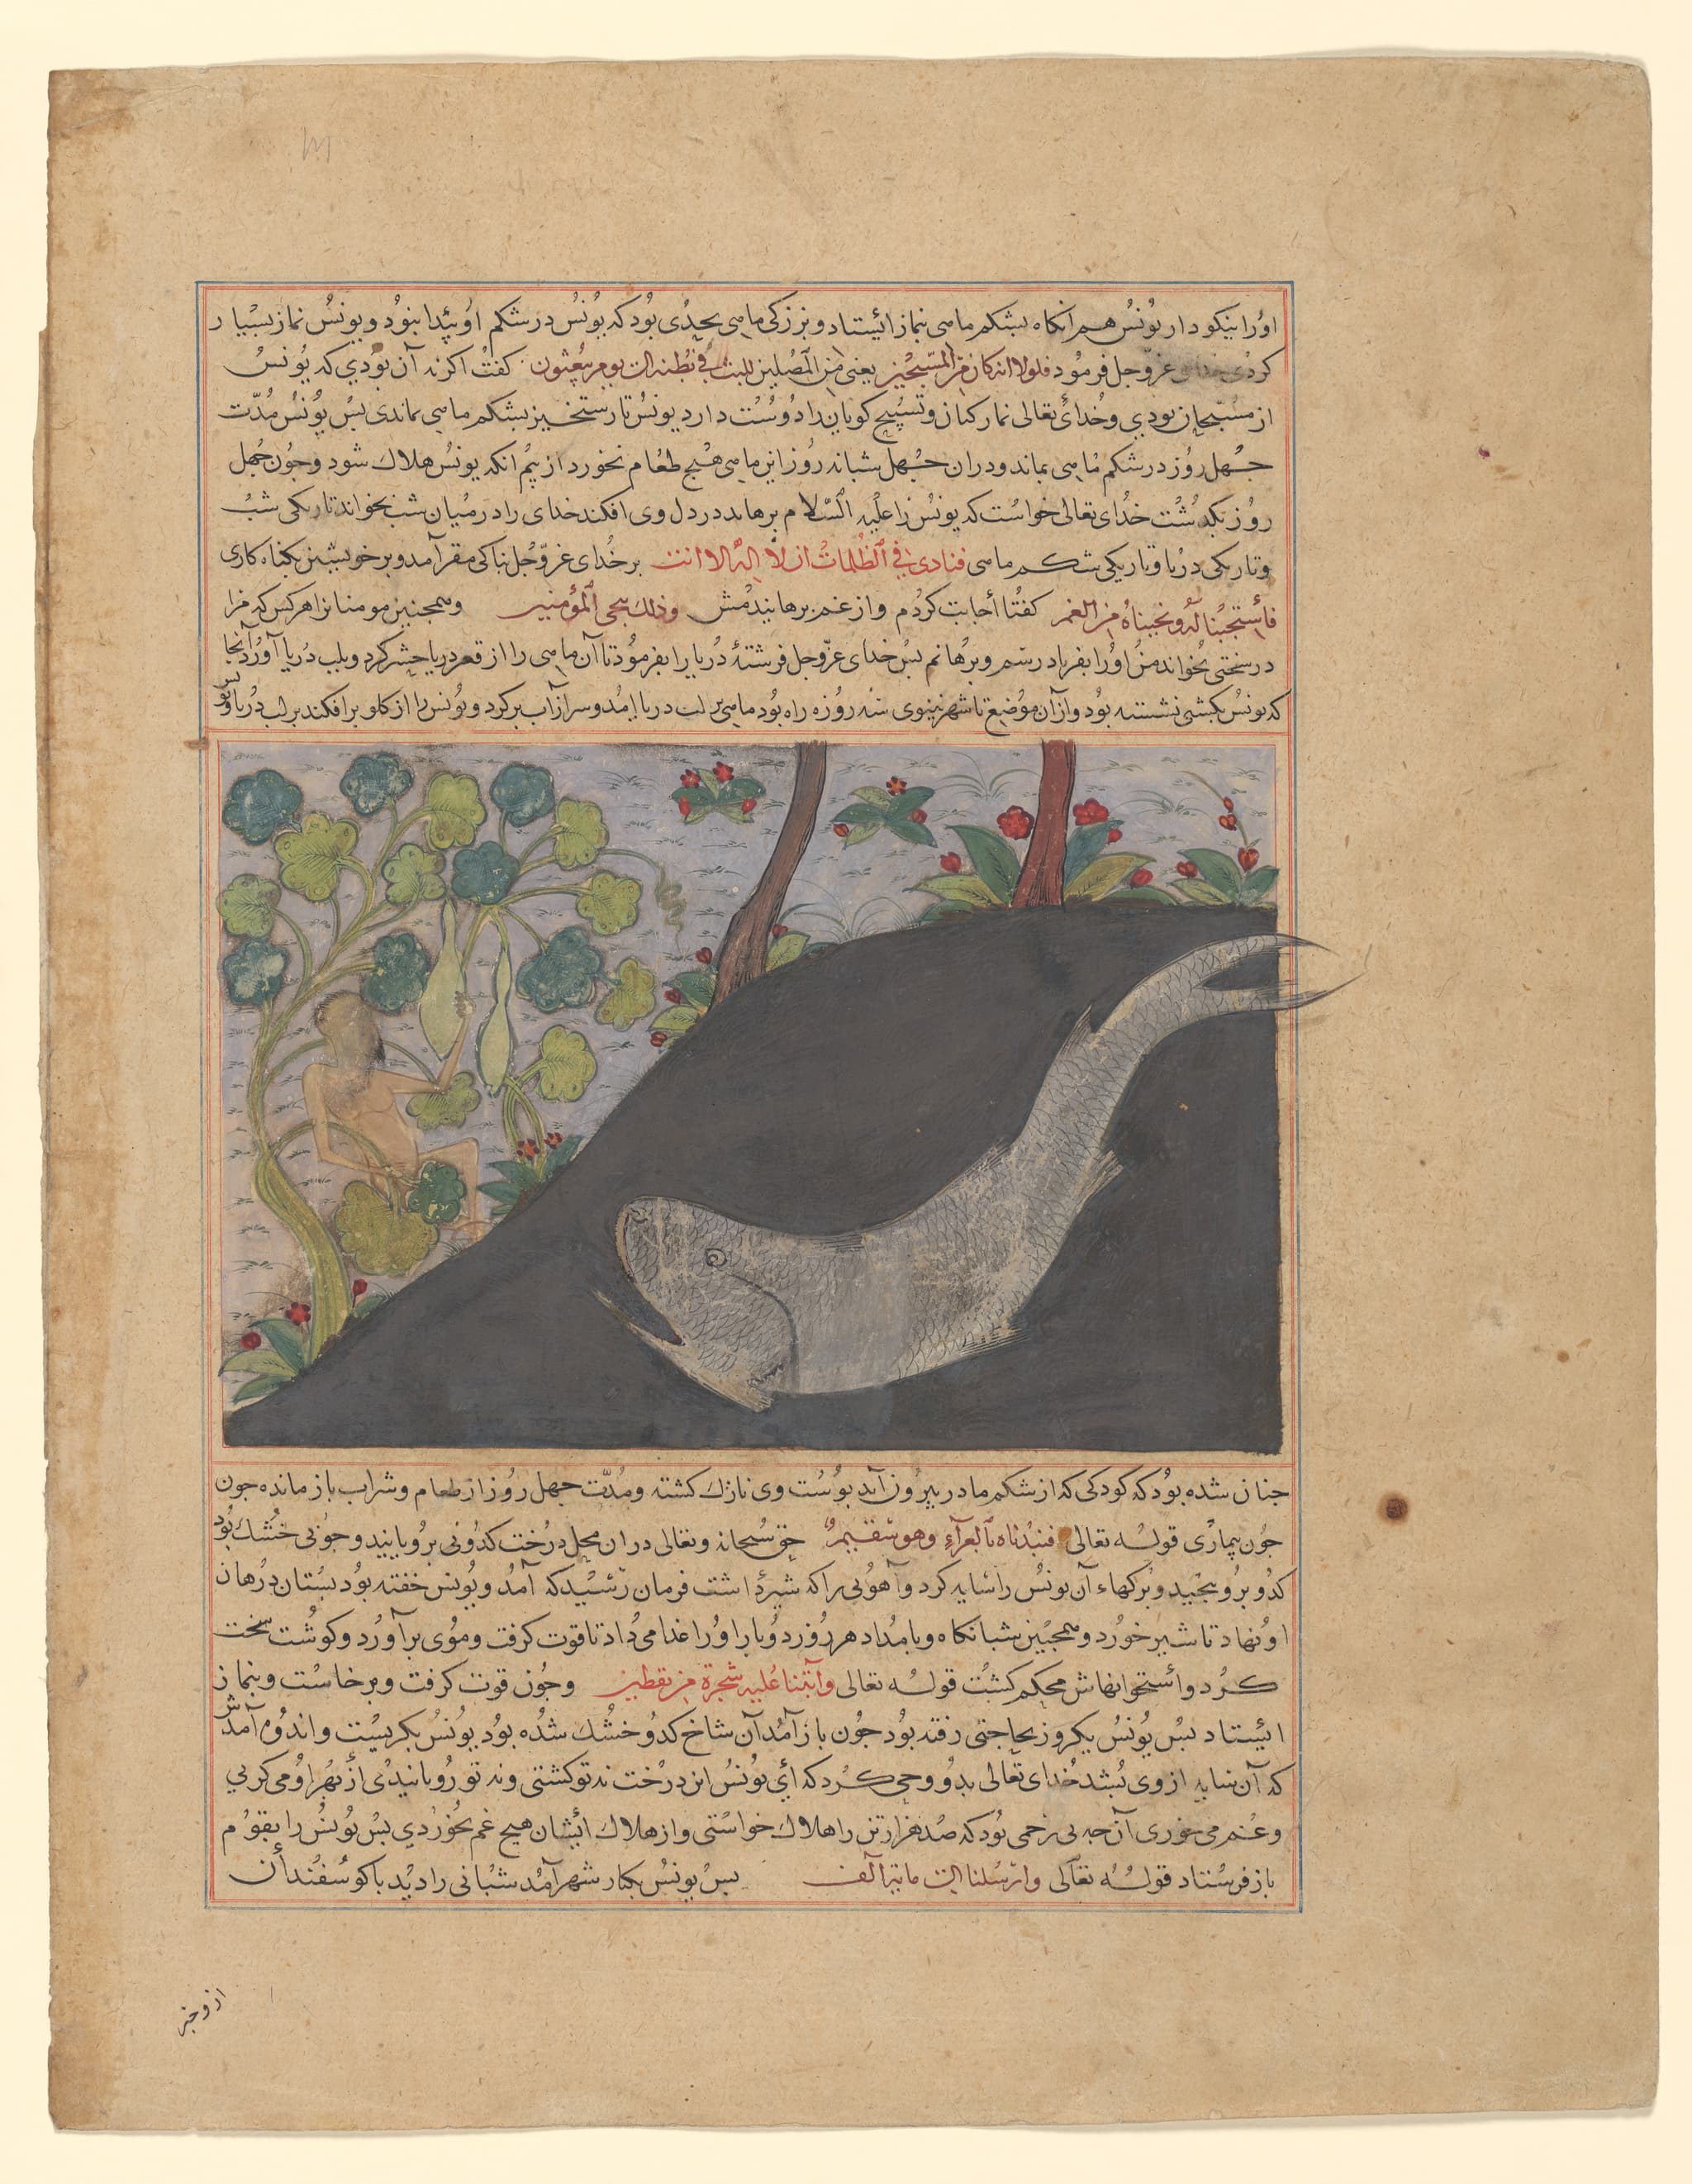 اورا نیکو دار یونس هم آنکاه بشکم ماهی نماز ایستاد و بزرکی ماهی بحدی بود که یونس در شکم او پیدا نبود و یونس نماز بسیار
کردی خدای عزوجل فرمود فلولا انه کان من المسبحین یعنی من المصلین للبث فی بطنه الی یوم یبعثون کفت اکر نه آن بودی که یونس
از مسبحان بودی و خدای تعالی نماز کنان و تسبیح کویان را دوست دارد یونس تا رستخیز بشکم ماهی بماندی بس یونس مدت
جهل روز در شکم ماهی بماند و در ان جهل شبانه روز این ماهی هیج طعام نخورد از بیم انکه یونس هلاک شود و جون جهل
روز بکذشت خدای تعالی خواست که یونس را علیه السلام برهاند در دل وی افکند خدای را در میان شب بخواند تاریکی شب
و تاریکی دریا و تاریکی شکم ماهی فنادی فی الظلمات ان لا اله الا انت بر خدای عزوجل بباکی مقر آمد و بر خویشتن بکناه کاری
فاستجبنا له و نجیناه من الغم کفتا أجابت کردم و از غم برهانیدمش وذلک ننجی المؤمنین و همجنین مومنانرا هر کس که مرا
در سختی بخواند من اورا بفریاد رسم و برهانم بس خدای عزوجل فرشتهٔ دریا را بفرمود تا آن ماهی را از قعر دریا حشر کرد و بلب دریا آورد آنجا
که یونس بکشتی نشسته بود و از آن موضع تا شهر نینوی سه روزه راه بود ماهی بر لب دریا امد و سر از آب بر کرد و یونس را از کلو بر افکند بر لب دریا و یونس
جنان شده بود که کودکی که از شکم مادر بیرون آید بوست وی نازک کشته و مدت جهل روز از طعام و شراب باز مانده جون
جون بیماری قوله تعالی فنبذناه بالعرآء وهو سقیم حق سبحانه و تعالی در ان محل درخت کدوئی برویانید و جوبی خشک بود
کدو برو بیجید و برکهاء آن یونس را سایه کرد و آهوئی را که شیر داشت فرمان رسید که آمد و یونس خفته بود بستان در دهان
او نهاد تا شیر خورد و همجنین شبانکاه و بامداد هر روز دو بار اورا غذا می داد تا قوت کرفت و موی بر آورد و کوشت سخت
کرد و استخوانهاش محکم کشت قوله تعالی وانبتنا علیه شجرة من یقطین و جون قوت کرفت و بر خاست و بنماز
ایستاد بس یونس یکروز بحاجتی رفته بود جون باز آمد آن شاخ کدو خشک شده بود یونس بکریست و اندوه آمدش
که آن سایه از وی بشد خدای تعالی بدو وحی کرد که أی یونس این درخت نه تو کشتی و نه تو رویانیدی از بهر او می کریی
و غم می خوری آن جه بی رحمی بود که صد هزار تن را هلاک خواستی و از هلاک ایشان هیج غم نخوردی بس یونس را بقوم
باز فرستاد قوله تعالی وارسلناه الی مایة الف بس یونس بکنار شهر آمد شبانی را دید با کوسفندان
از وخبر